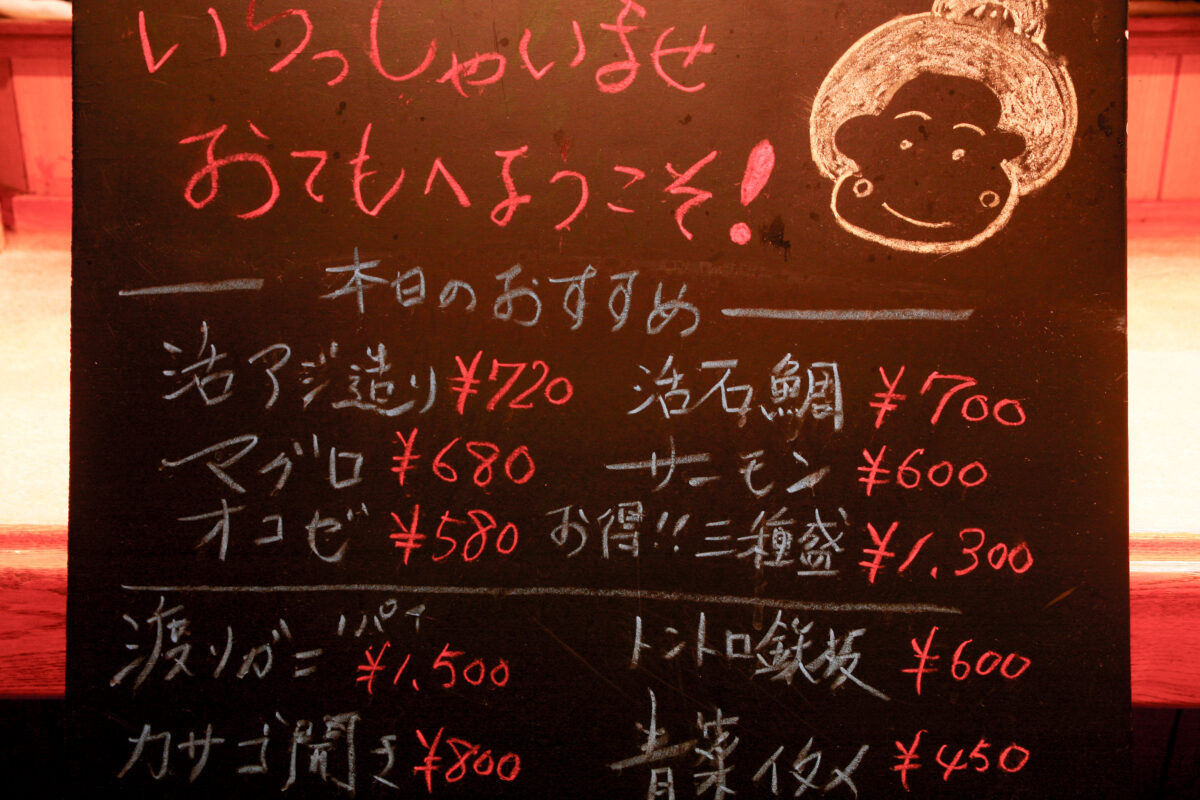 いらっしゃいませ
おてもへようこそ！
本日のおすすめ
活アジ造り ¥720 活石鯛 ¥700
マグロ ¥680 サーモン ¥600
オコゼ ¥580 お得!! 三種盛 ¥1,300
渡りガニ パイ ¥1,500 トントロ鉄板 ¥600
カサゴ開き ¥800 青菜イタメ ¥450